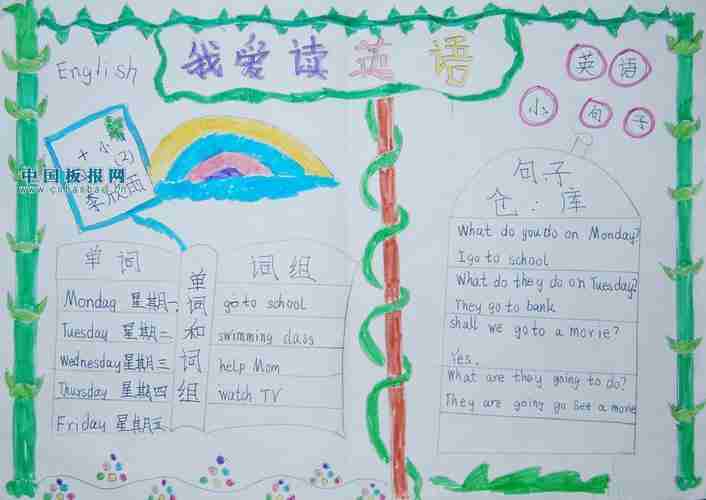 我爱读英语
English
英语
小句子
十小
(2)
李欣
中国板报网
单词
词组
单词和词组
Monday 星期一
go to school
Tuesday 星期二
swimming class
Wednesday 星期三
help Mom
Thursday 星期四
watch TV
Friday 星期五
句子
仓库
What do you do on Monday?
I go to school
What do they do on Tuesday?
They go to bank
shall we go to a movie?
Yes.
What are they going to do?
They are going go see a movie